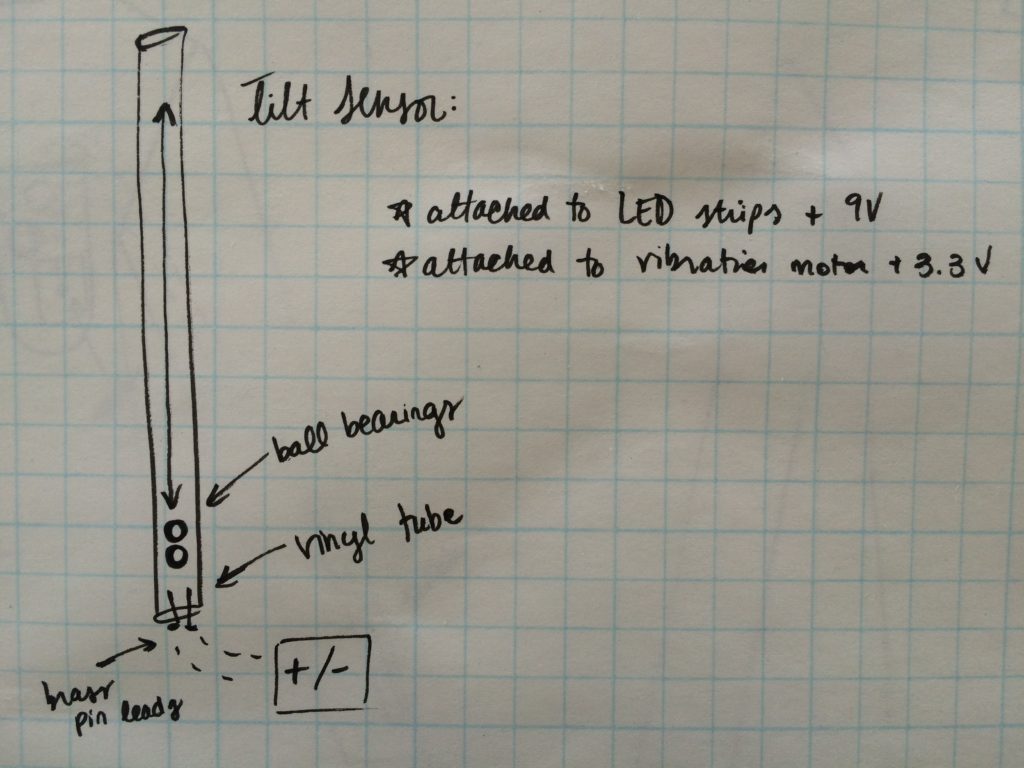 Tilt sensor:
☆ attached to LED strips + 9V
☆ attached to vibration motor + 3.3V
ball bearings
vinyl tube
+/-
brass
pin leads